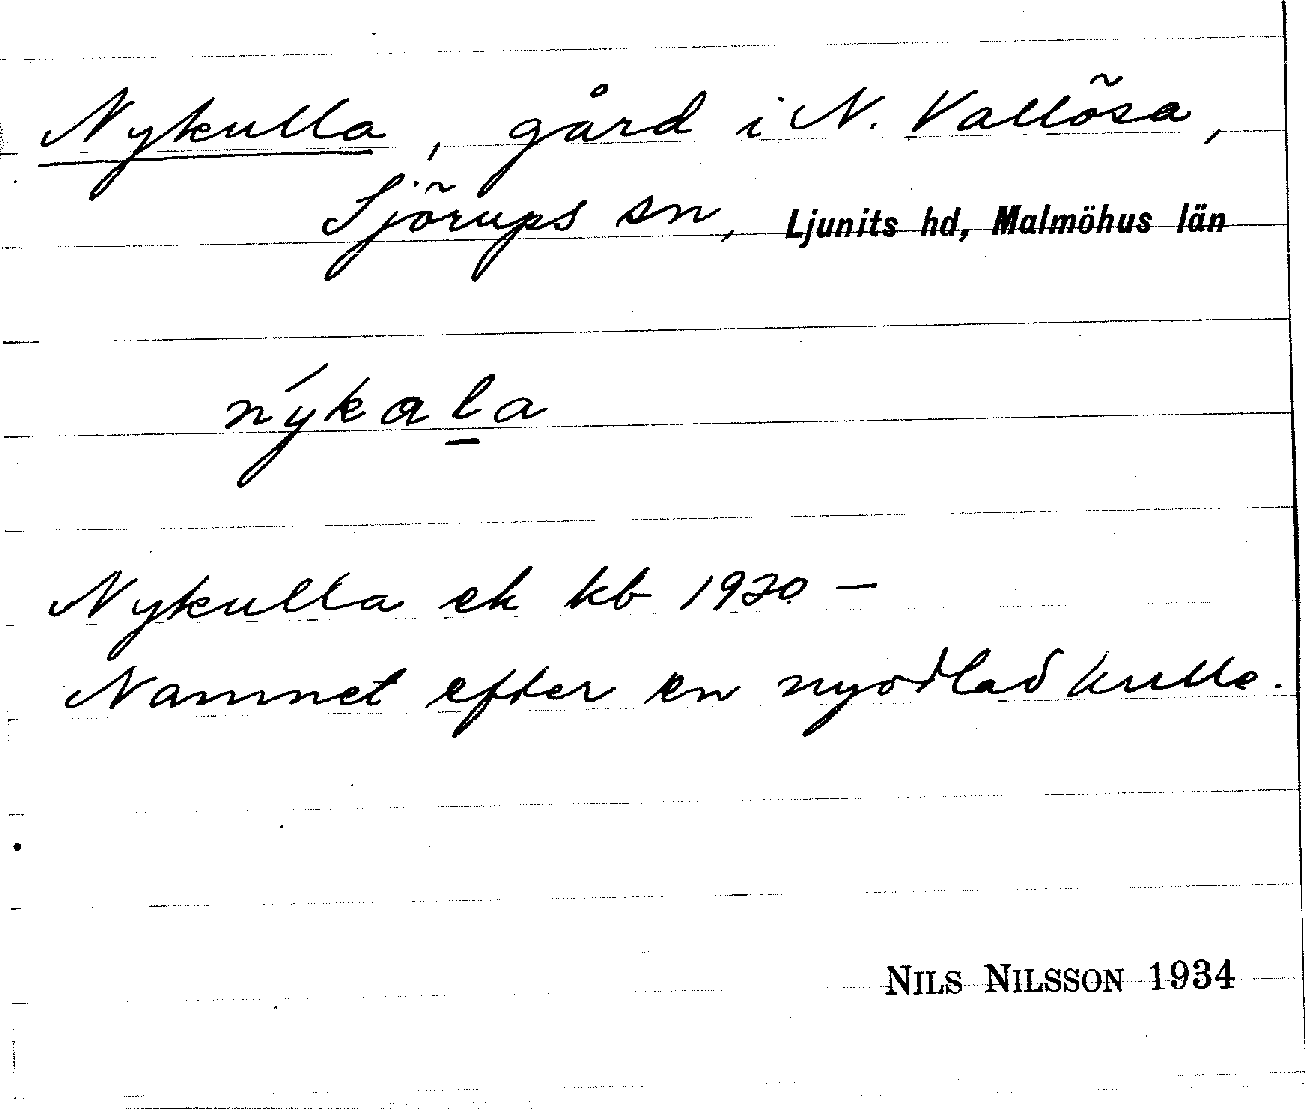 Nykulla, gård i N. Vallösa,
Sjörups sn, Ljunits hd, Malmöhus län
nýkala
Nykulla ek kb 1920 –
Namnet efter en nyodlad kulle.
NILS NILSSON 1934